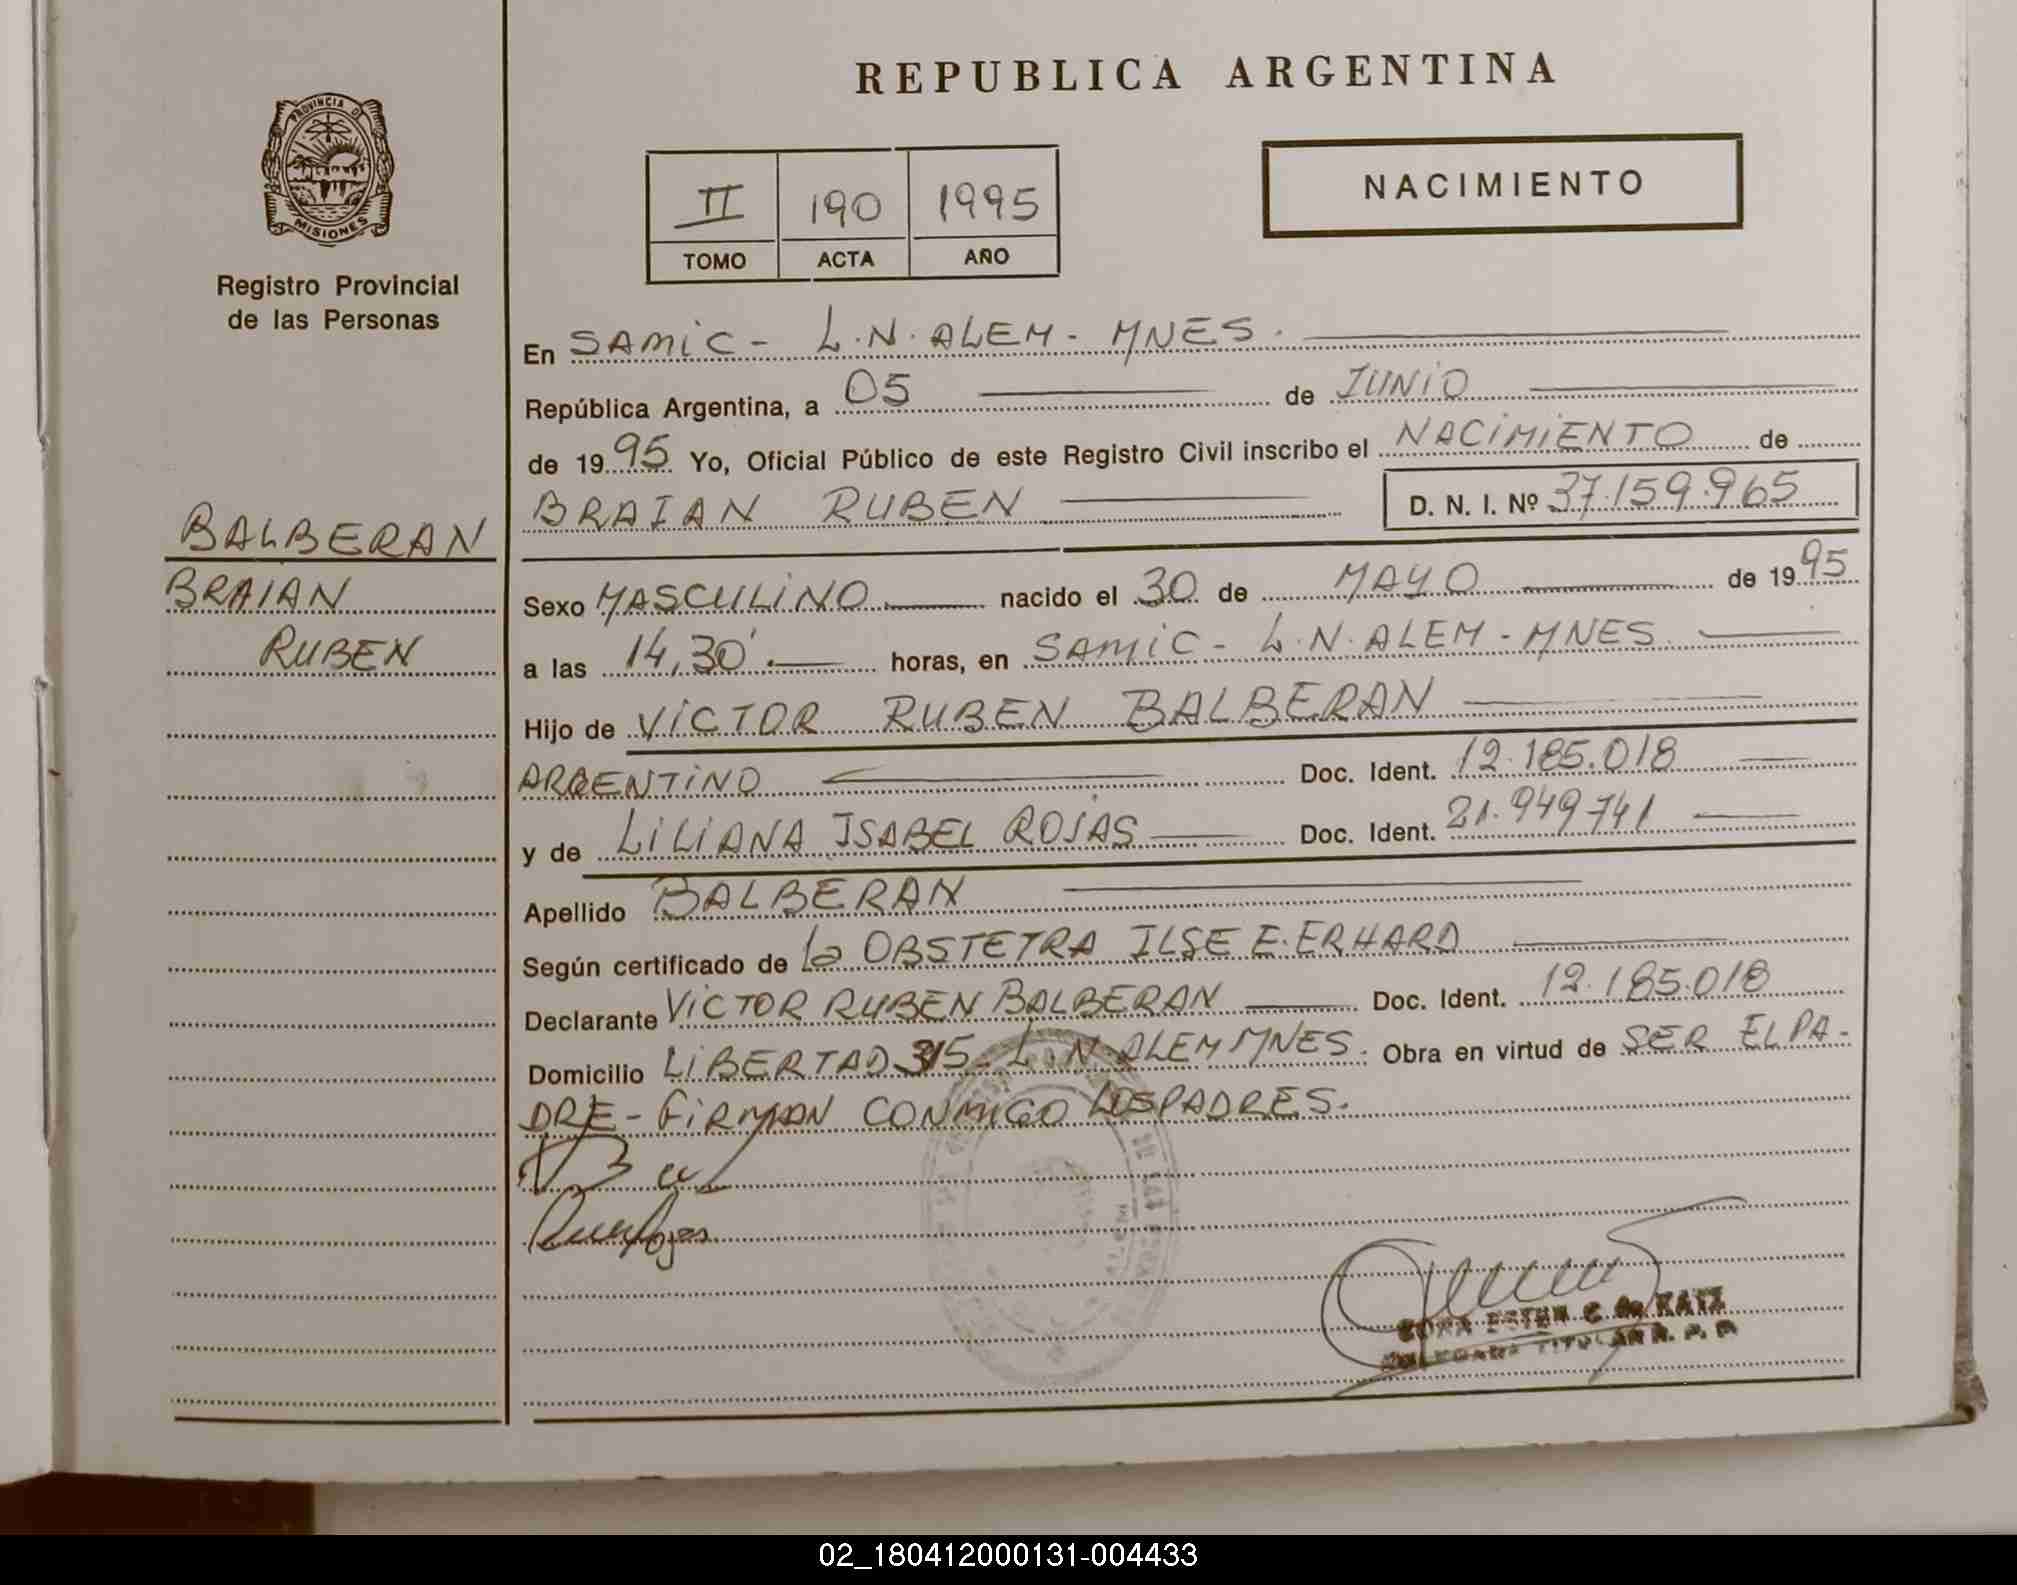 REPUBLICA ARGENTINA
PROVINCIA DE
MISIONES
Registro Provincial
de las Personas
II 190 1995
TOMO ACTA AÑO
NACIMIENTO
BALBERAN
BRAIAN
RUBEN
En SAMIC - L.N. ALEM - MNES.
República Argentina, a 05 de JUNIO
de 1995 Yo, Oficial Público de este Registro Civil inscribo el NACIMIENTO de
BRAIAN RUBEN D. N. I. Nº 37.159.965
Sexo MASCULINO nacido el 30 de MAYO de 1995
a las 14,30' horas, en SAMIC - L.N. ALEM - MNES.
Hijo de VICTOR RUBEN BALBERAN
ARGENTINO Doc. Ident. 12.185.018
y de LILIANA ISABEL ROJAS Doc. Ident. 21.949741
Apellido BALBERAN
Según certificado de la OBSTETRA ILSE E. ERHARD
Declarante VICTOR RUBEN BALBERAN Doc. Ident. 12.185.018
Domicilio LIBERTAD 315 - L.N. ALEM MNES. Obra en virtud de SER EL PA-
DRE - FIRMAN CONMIGO LOS PADRES.
Rojas
ESTHER C. de KATZ
TITULAR R. P. P.
02_180412000131-004433